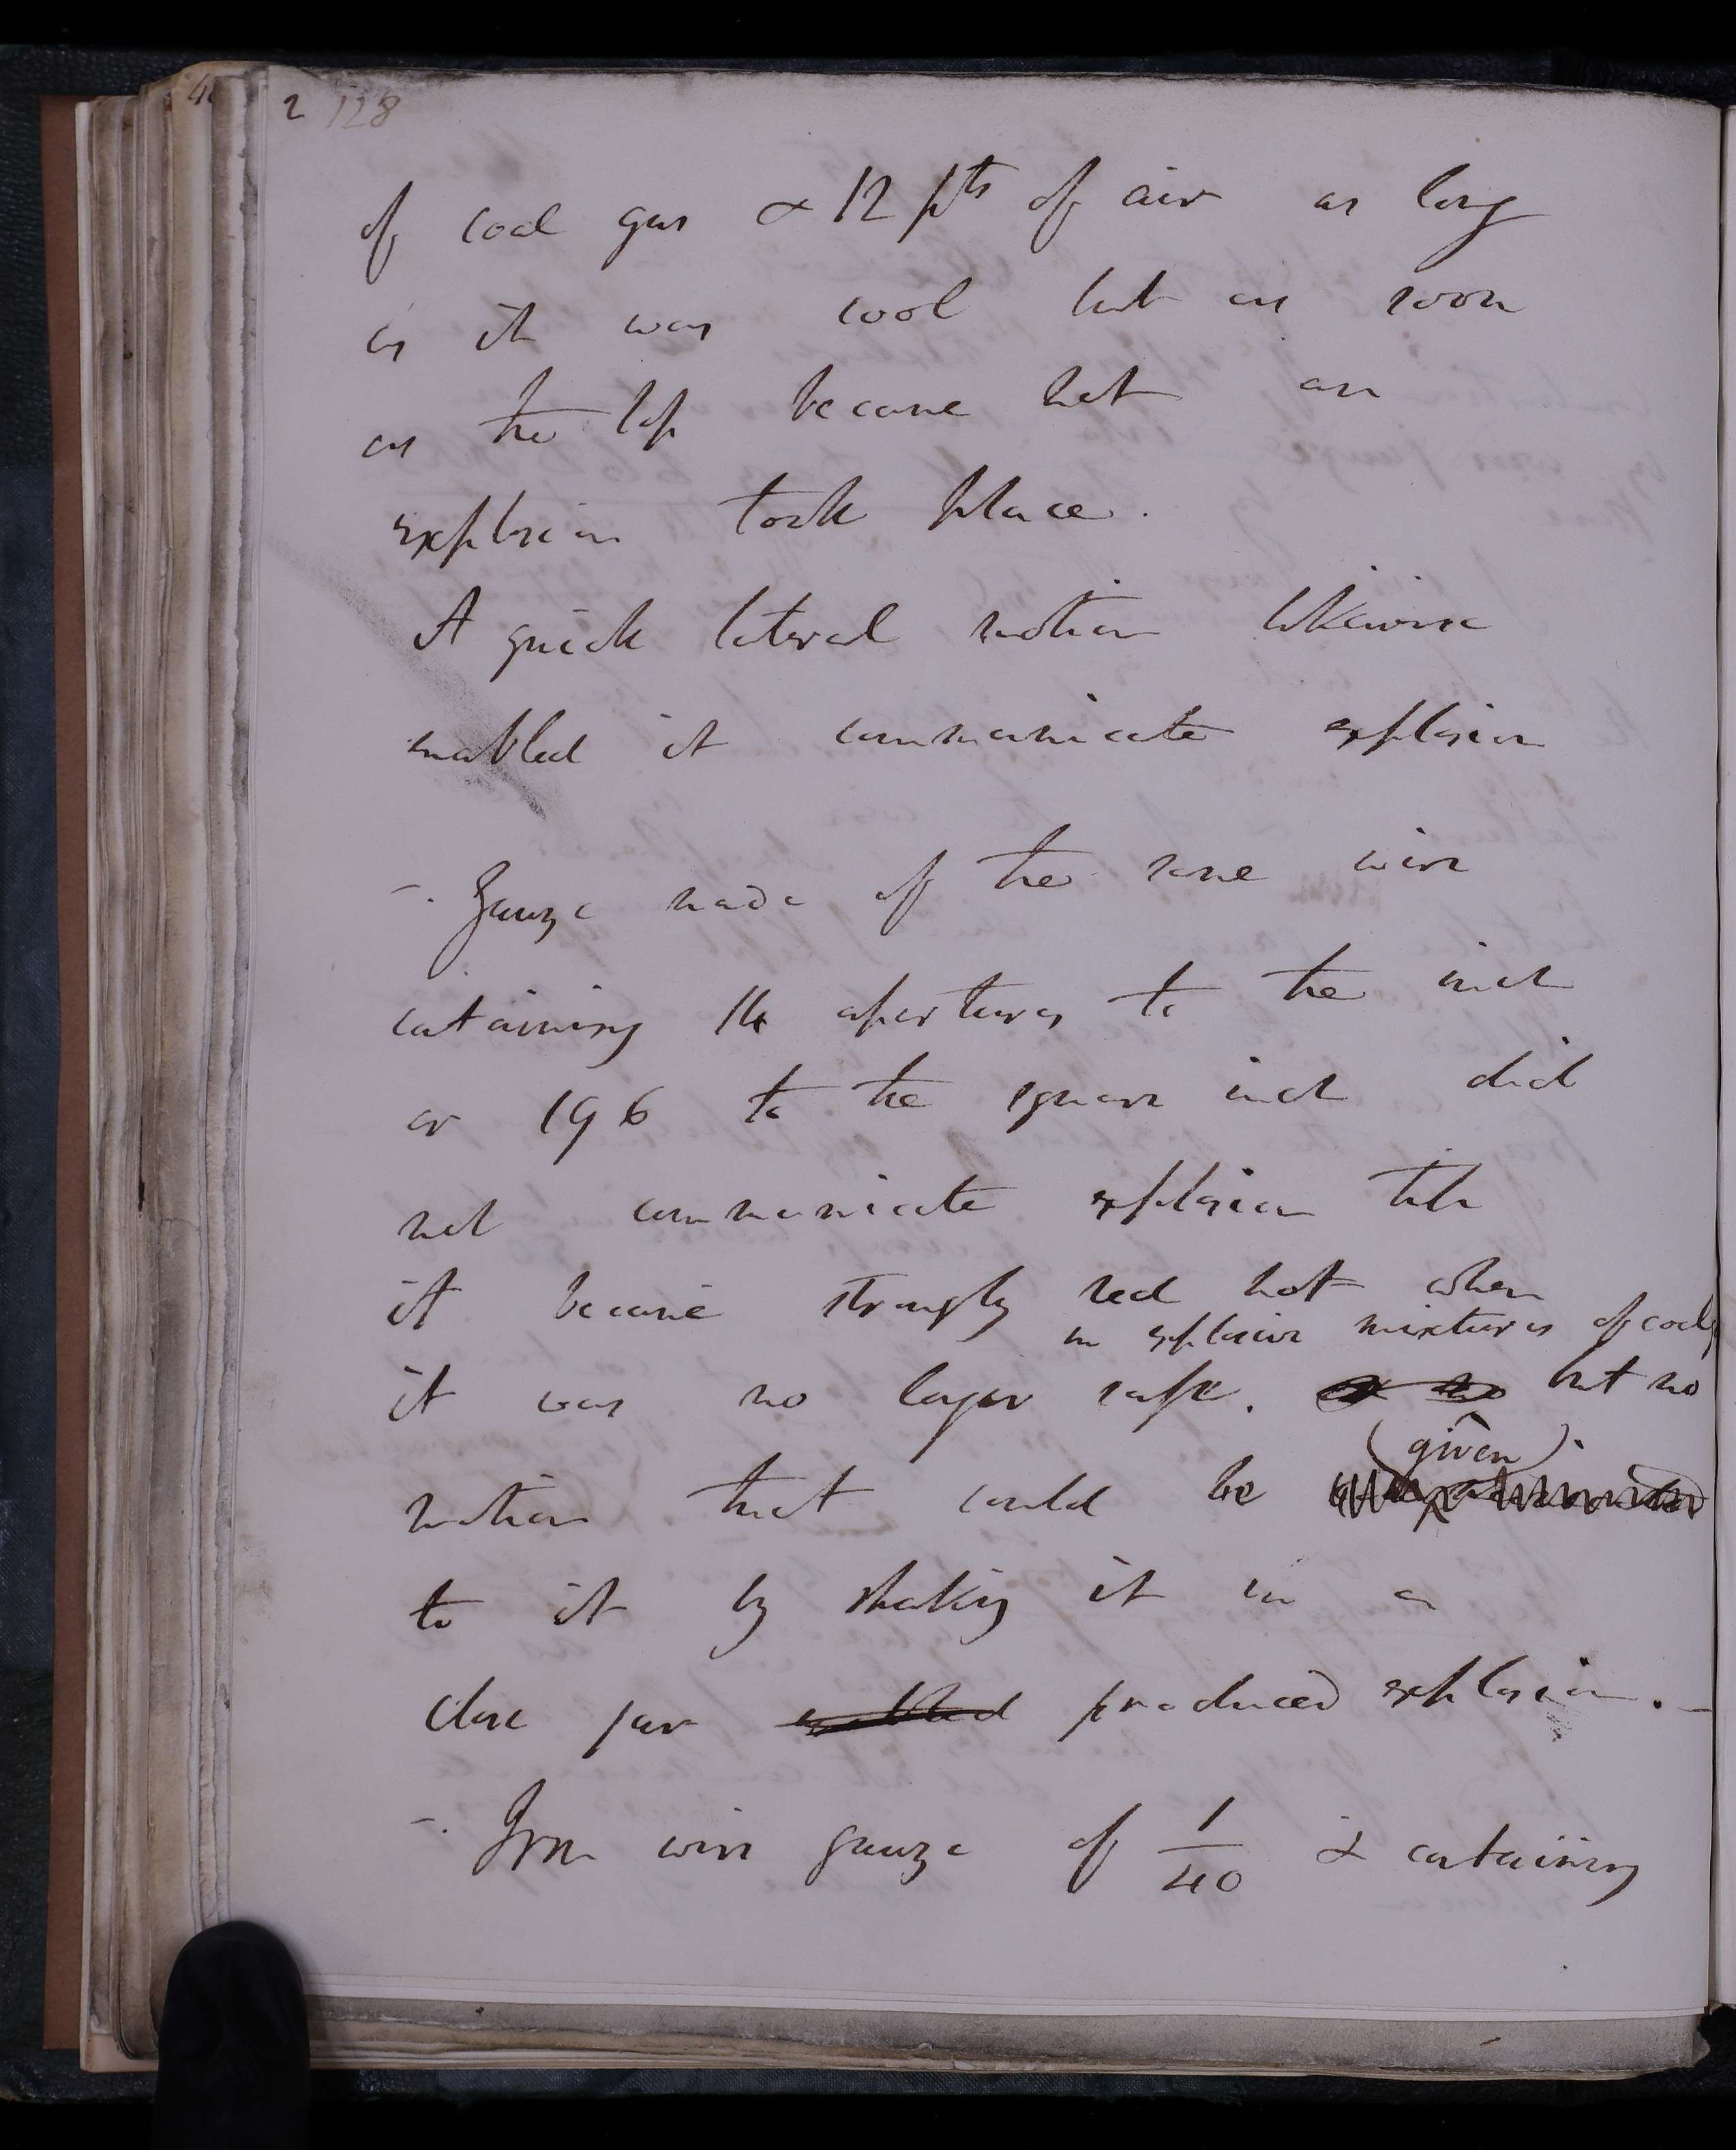 2 128
of coal gas & 12 pts of air as long
as it was cool but as soon
as the top became hot an
explosion took place.
A quick lateral motion likewise
enabled it communicate explosion
-. Gauze made of the same wire
containing 14 apertures to the inch
or 196 to the square inch did
not communicate explosion till
it became strongly red hot when
in explosive mixtures of coal
it was no longer safe. but no
(given).
motion that could be
to it by shaking it in a
close jar enabled produced explosion. -
-. Iron wire gauze of 1/40 & containing